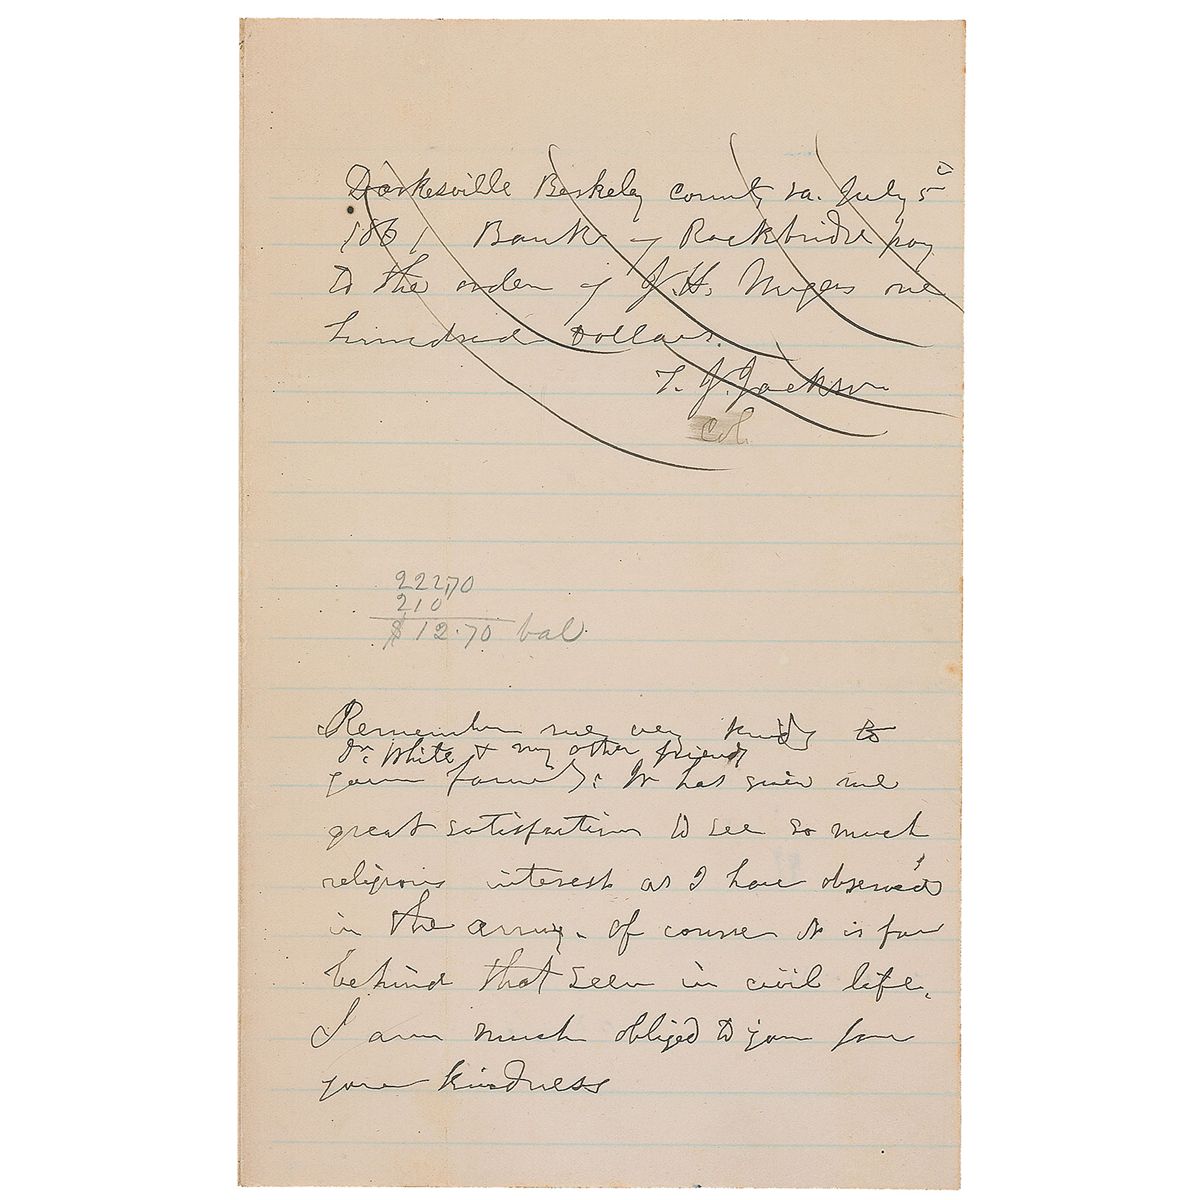 Darkesville Berkeley County Va. July 5
1861 Bank of Rockbridge pay
to the order of J. H. Myers one
hundred Dollars.
T. J. Jackson
Col.
222,70
210
$12.70 bal.
Remember me very kindly to
Dr. White & my other friends
your family: It has given me
great satisfaction to see so much
religious interest as I have observed
in the army. Of course it is far
behind that seen in civil life.
I am much obliged to you for
your kindness